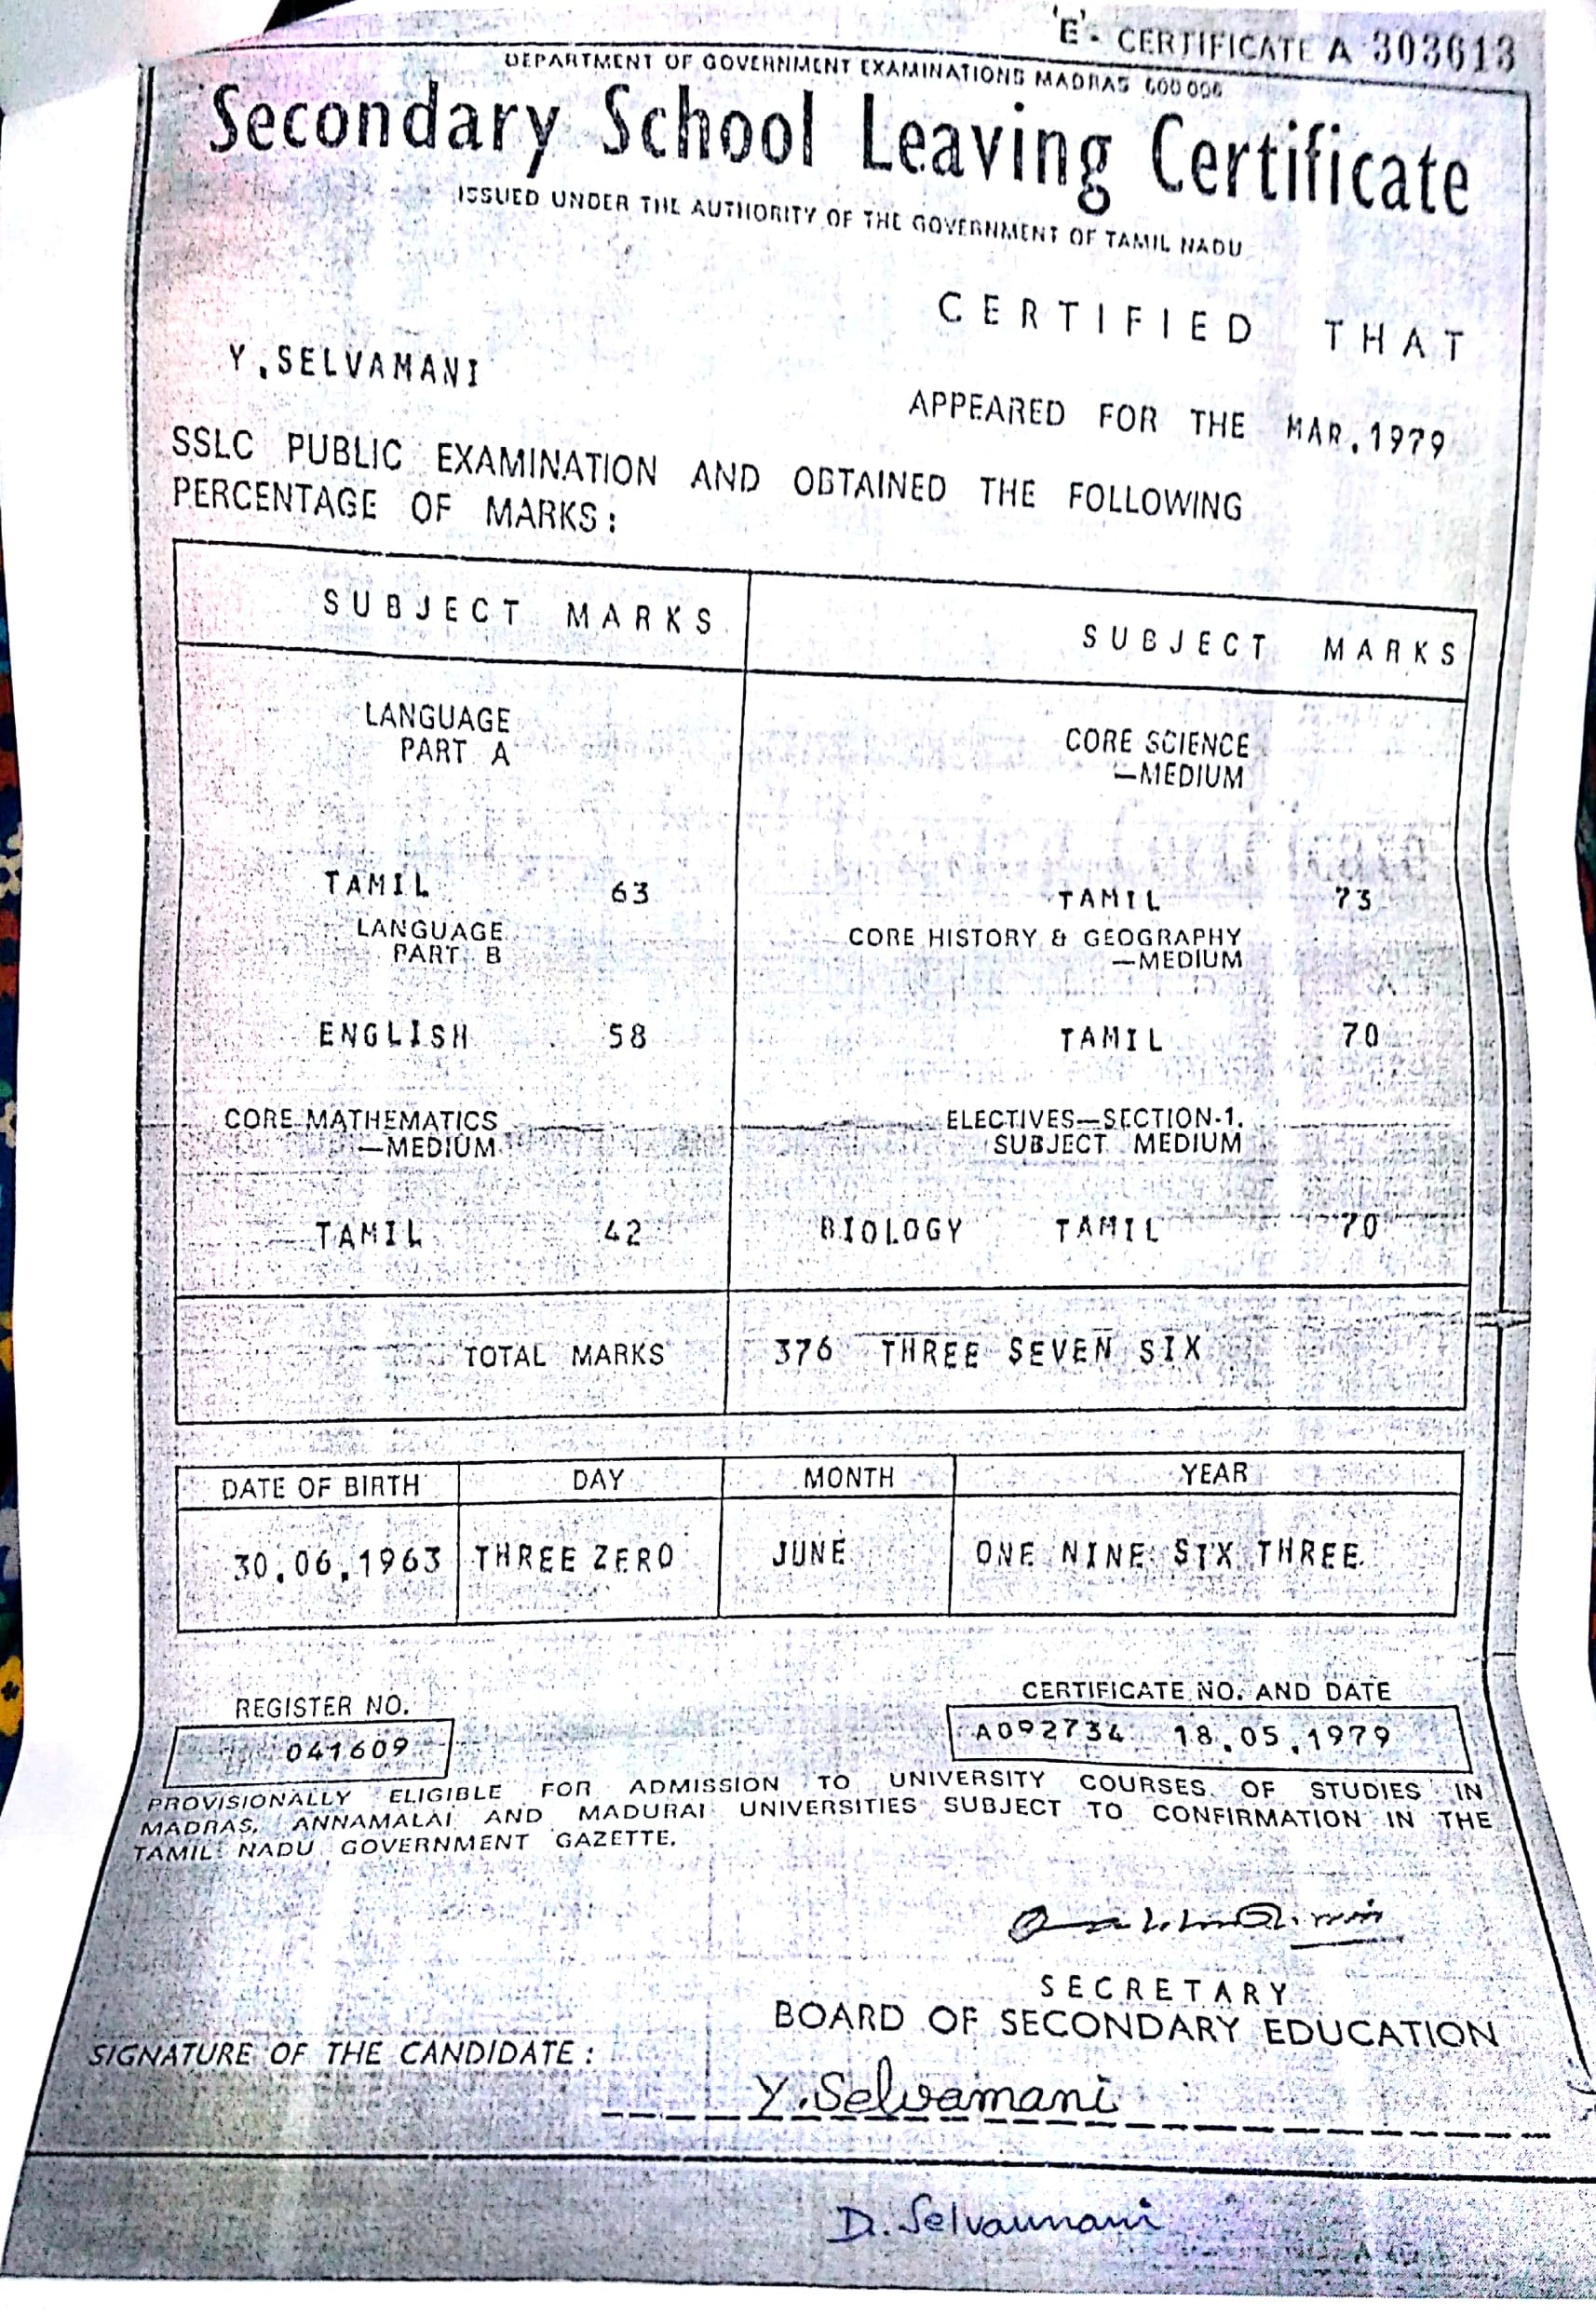 'E'- CERTIFICATE A 303613
DEPARTMENT OF GOVERNMENT EXAMINATIONS MADRAS 600 006
Secondary School Leaving Certificate
ISSUED UNDER THE AUTHORITY OF THE GOVERNMENT OF TAMIL NADU
CERTIFIED THAT
Y.SELVAMANI
APPEARED FOR THE MAR.1979
SSLC PUBLIC EXAMINATION AND OBTAINED THE FOLLOWING
PERCENTAGE OF MARKS:
SUBJECT MARKS SUBJECT MARKS
LANGUAGE
PART A
CORE SCIENCE
—MEDIUM
TAMIL 63 TAMIL 73
LANGUAGE
PART B
CORE HISTORY & GEOGRAPHY
—MEDIUM
ENGLISH 58 TAMIL 70
CORE MATHEMATICS
—MEDIUM
ELECTIVES—SECTION-1.
SUBJECT MEDIUM
TAMIL 42 BIOLOGY TAMIL 70
TOTAL MARKS 376 THREE SEVEN SIX
DATE OF BIRTH DAY MONTH YEAR
30.06.1963 THREE ZERO JUNE ONE NINE SIX THREE
REGISTER NO. CERTIFICATE NO. AND DATE
041609 A092734 18.05.1979
PROVISIONALLY ELIGIBLE FOR ADMISSION TO UNIVERSITY COURSES OF STUDIES IN
MADRAS, ANNAMALAI AND MADURAI UNIVERSITIES SUBJECT TO CONFIRMATION IN THE
TAMIL NADU GOVERNMENT GAZETTE.
SECRETARY
BOARD OF SECONDARY EDUCATION
SIGNATURE OF THE CANDIDATE:
Y.Selvamani
D. Selvamani